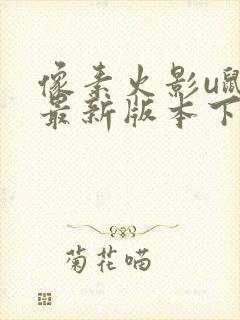 像素火影u鼠
最新版本下
菊花喵